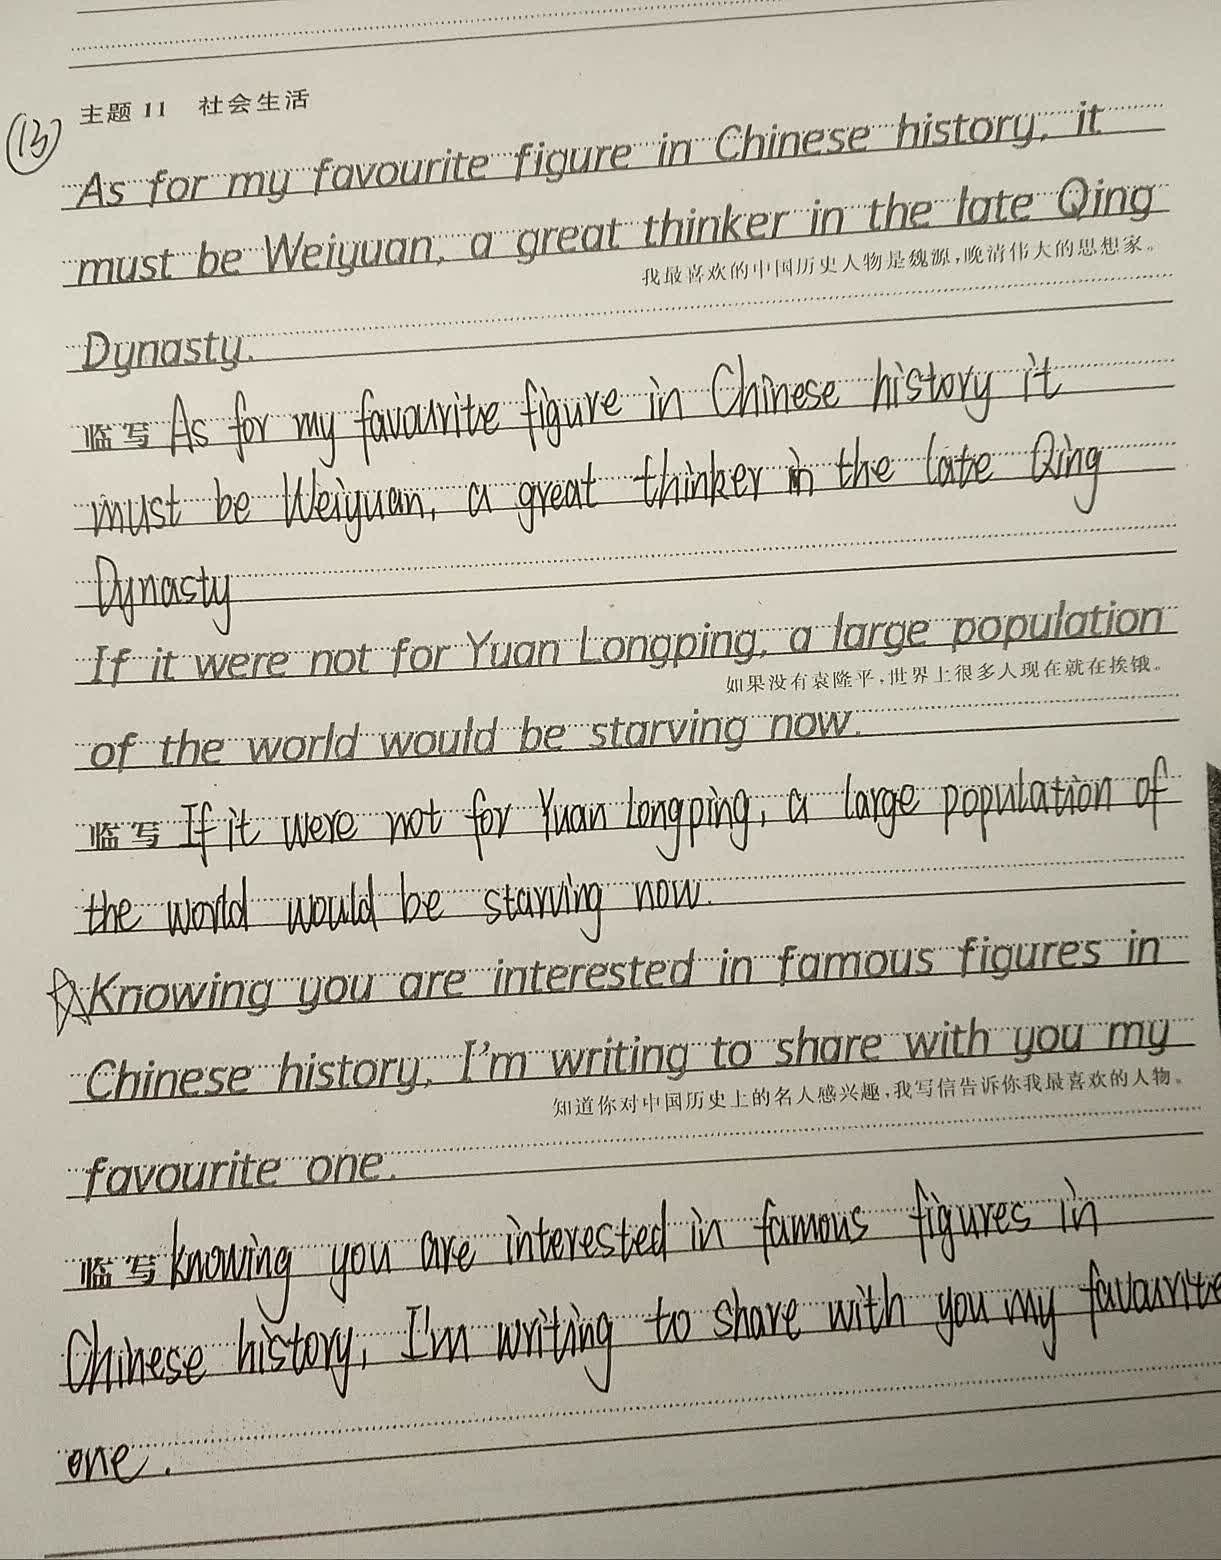 主题 11 社会生活
(13)
As for my favourite figure in Chinese history, it
must be Weiyuan, a great thinker in the late Qing
我最喜欢的中国历史人物是魏源,晚清伟大的思想家。
Dynasty.
临写 As for my favourite figure in Chinese history it
must be Weiyuan, a great thinker in the late Qing
Dynasty
If it were not for Yuan Longping, a large population
如果没有袁隆平,世界上很多人现在就在挨饿。
of the world would be starving now.
临写 If it were not for Yuan Longping, a large population of
the world would be starving now.
Knowing you are interested in famous figures in
Chinese history, I'm writing to share with you my
知道你对中国历史上的名人感兴趣,我写信告诉你我最喜欢的人物。
favourite one.
临写 knowing you are interested in famous figures in
Chinese history, I'm writing to share with you my favourite
one.